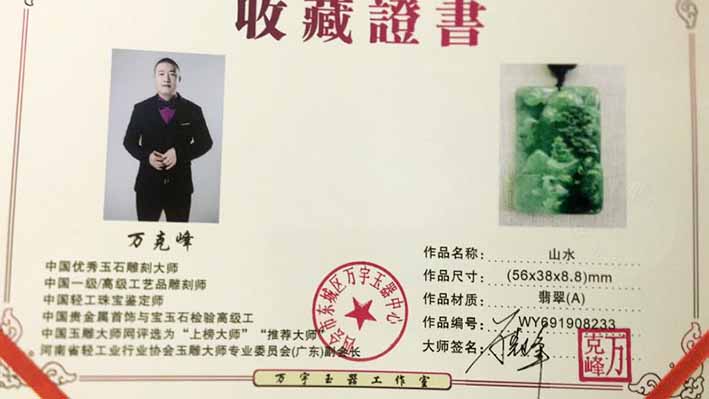 收藏證書
万克峰
中国优秀玉石雕刻大师
中国一级/高级工艺品雕刻师
中国轻工珠宝鉴定师
中国贵金属首饰与宝玉石检验高级工
中国玉雕大师网评选为“上榜大师”“推荐大师”
河南省轻工业行业协会玉雕大师专业委员会(广东)副会长
四会市东城区万字玉器中心
作品名称: 山水
作品尺寸: (56x38x8.8)mm
作品材质: 翡翠(A)
作品编号: WY691908233
大师签名: 万克峰
万克峰
万字玉器工作室